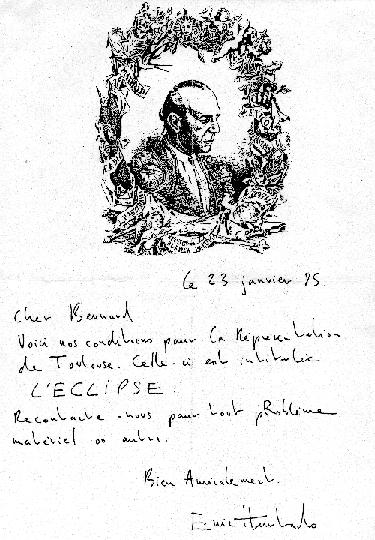 le 23 janvier 95
Cher Bernard
Voici nos conditions pour la Représentation
de Toulouse. Celle-ci est intitulée
L'ECLIPSE.
Recontacte-nous pour tout pRoblème
matériel ou autre.
Bien Amicalement.